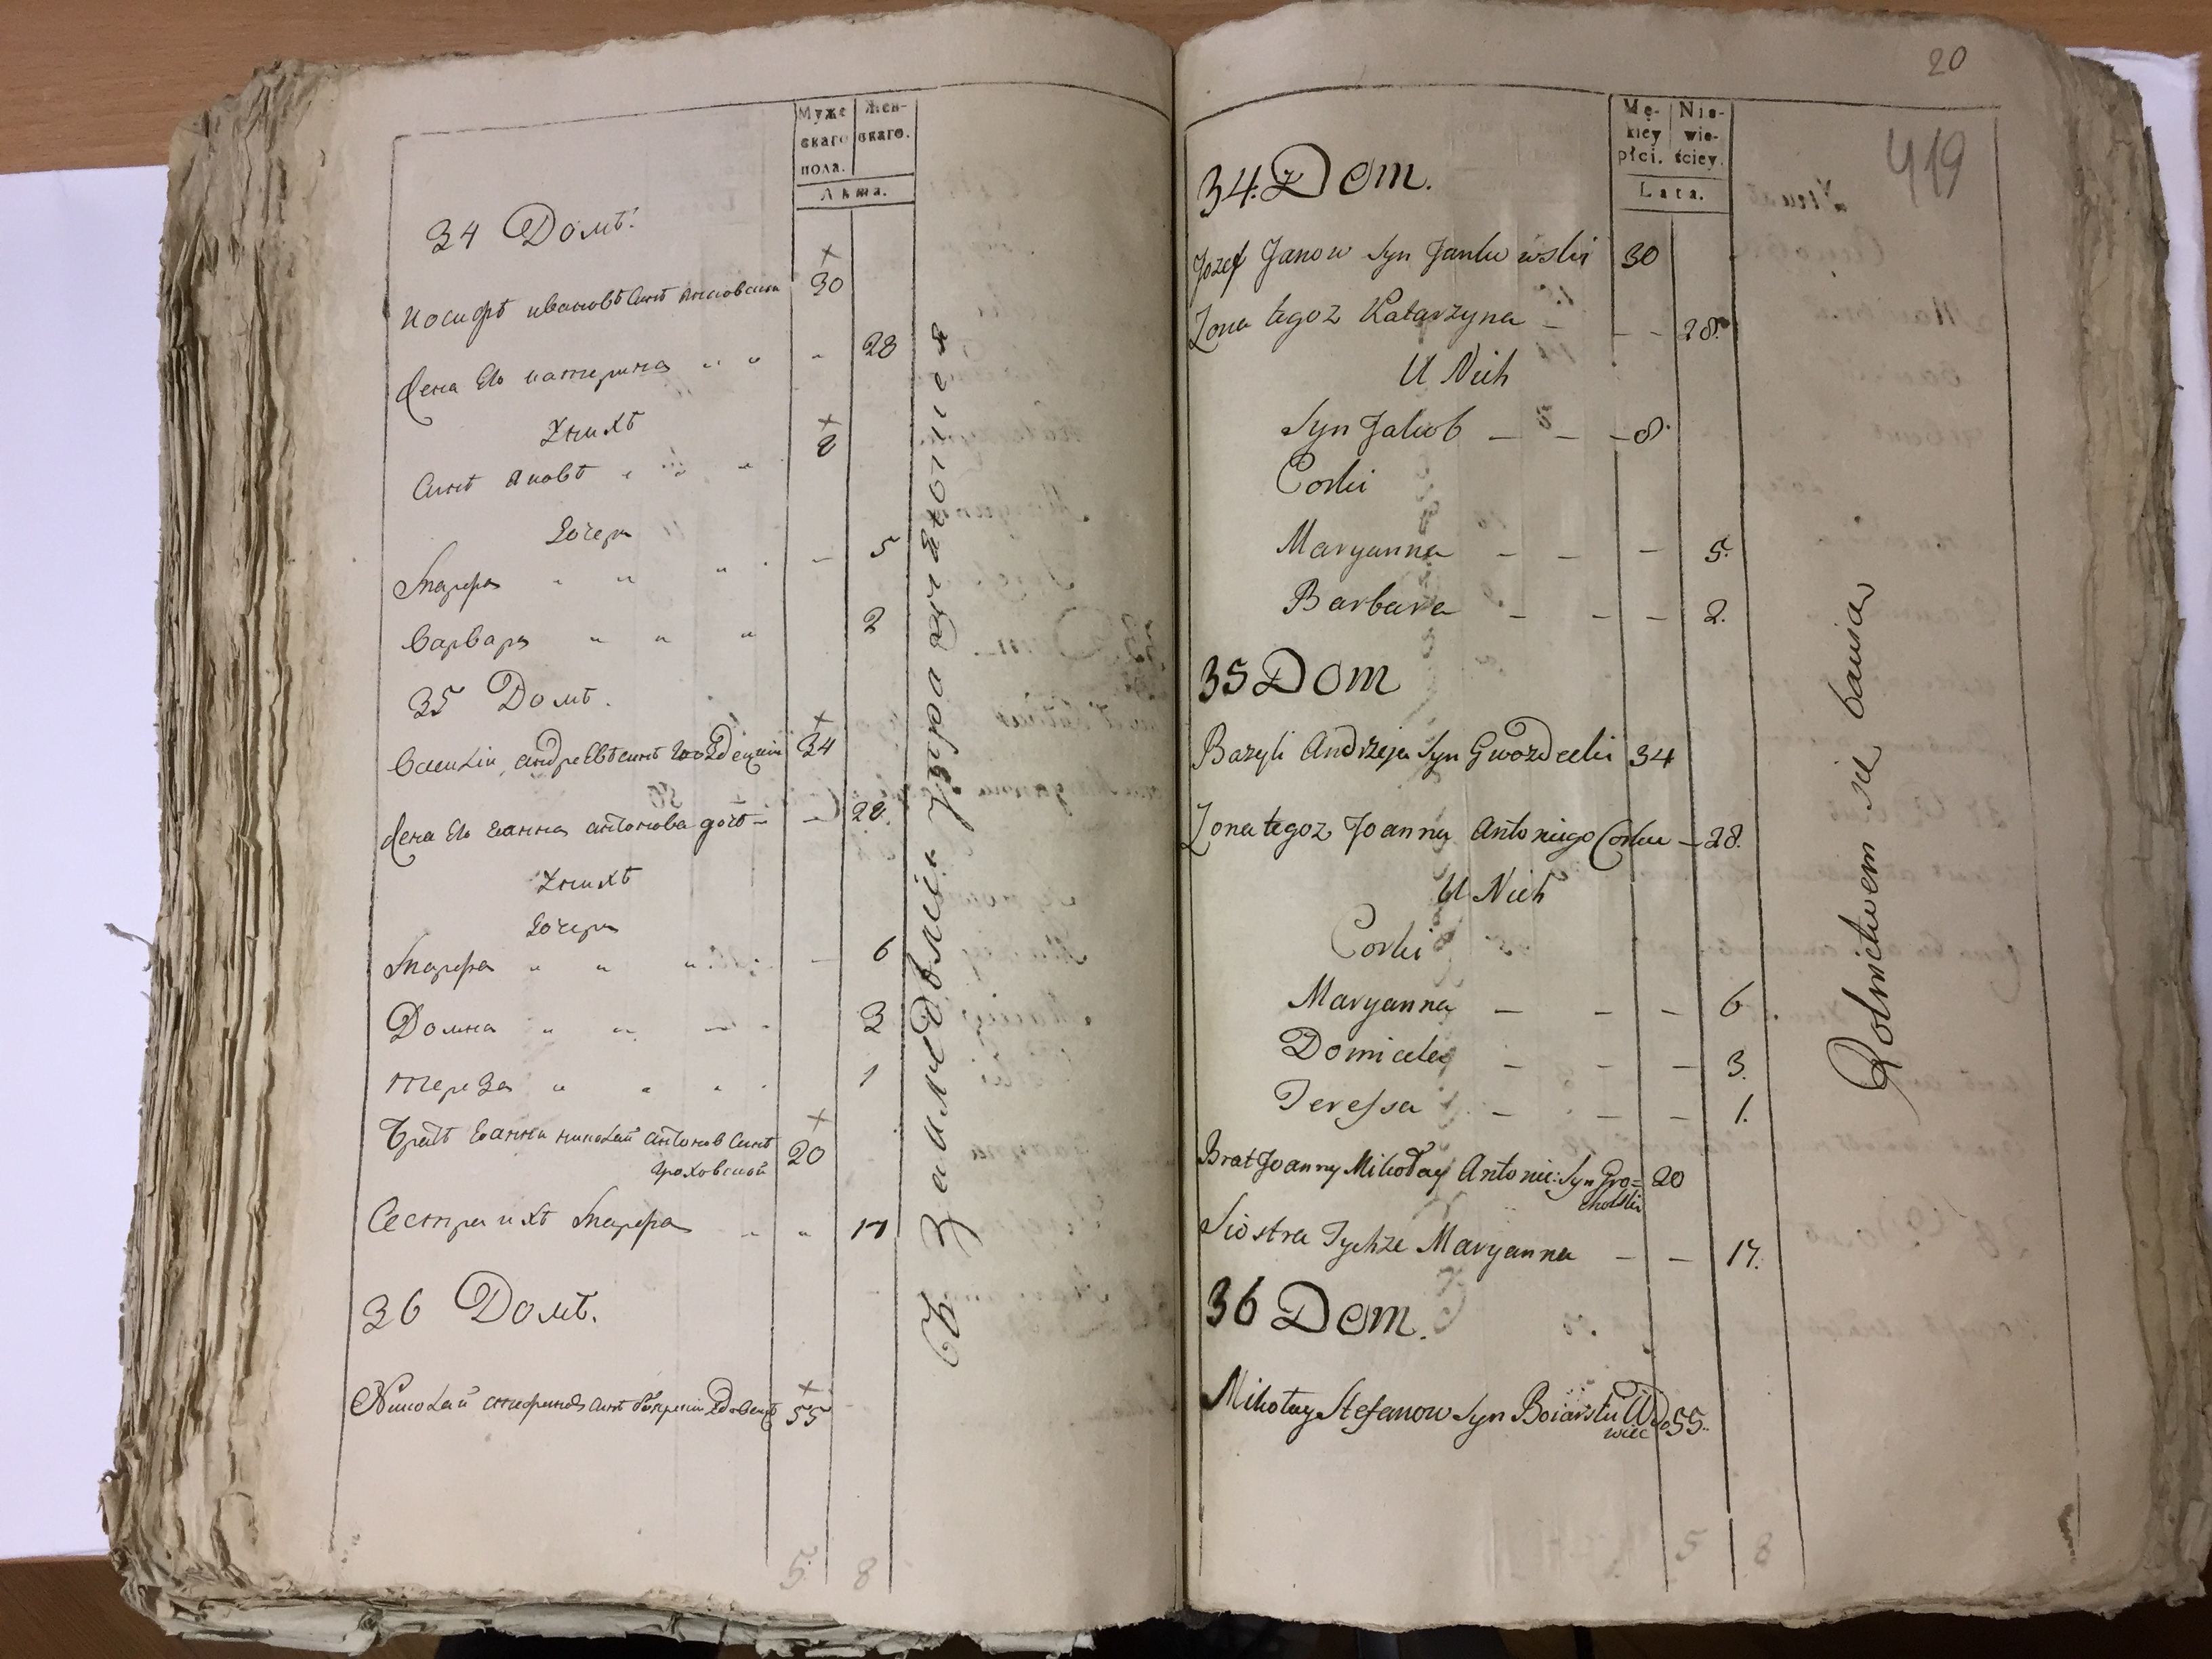 Муже
скаго
пола.
Жен-
скаго.
Лѣта.
34 Домъ.
Иосифъ ивановъ Синъ Янковский 30
Жена Его катерина „ „ „ 28
У нихъ
Синъ Яковъ „ „ „ 8
Дочери
Марфа „ „ „ – 5
Варвара „ „ „ 2
35 Домъ.
Василій андреевъ синъ Гвоздецкий 34
Жена Его Еанна антонова доч – – 28.
У нихъ
Дочери
Марфа „ „ „ – 6
Домна „ „ – 3
тереза „ „ „ 1
Братъ Еанни николай антонов Синъ 20
Гроховский
Сестра ихъ Марфа „ „ 17
36 Домъ.
Николай стефановъ Синъ Боярский Вдовецъ 55
5. 8
Хлебопашествомъ
20
419
Mę-
kiey
płci.
Nie-
wie-
ściey.
Lata.
34. Dom.
Jozef Janow Syn Jankowski 30
Zona tegoz Katarzyna – – – 28.
U Nich
Syn Jakob – – – 8.
Corki
Maryanna – – – 5.
Barbara – – – 2.
35 Dom
Bazyli Andrzeja Syn Gwozdecki 34
Zona tegoz Joanna Antoniego Corka – 28.
U Nich
Corki
Maryanna – – – 6.
Domicela – – – 3.
Teressa – – – 1.
Brat Joanny Mikołay Antonie: Syn Gro= 20
cholski
Siostra Tychże Maryanna – – 17.
36 Dom.
Mikołay Stefanow Syn Boiarski Wdo 55.
wiec
5 8
Rolnictwem sie bawią